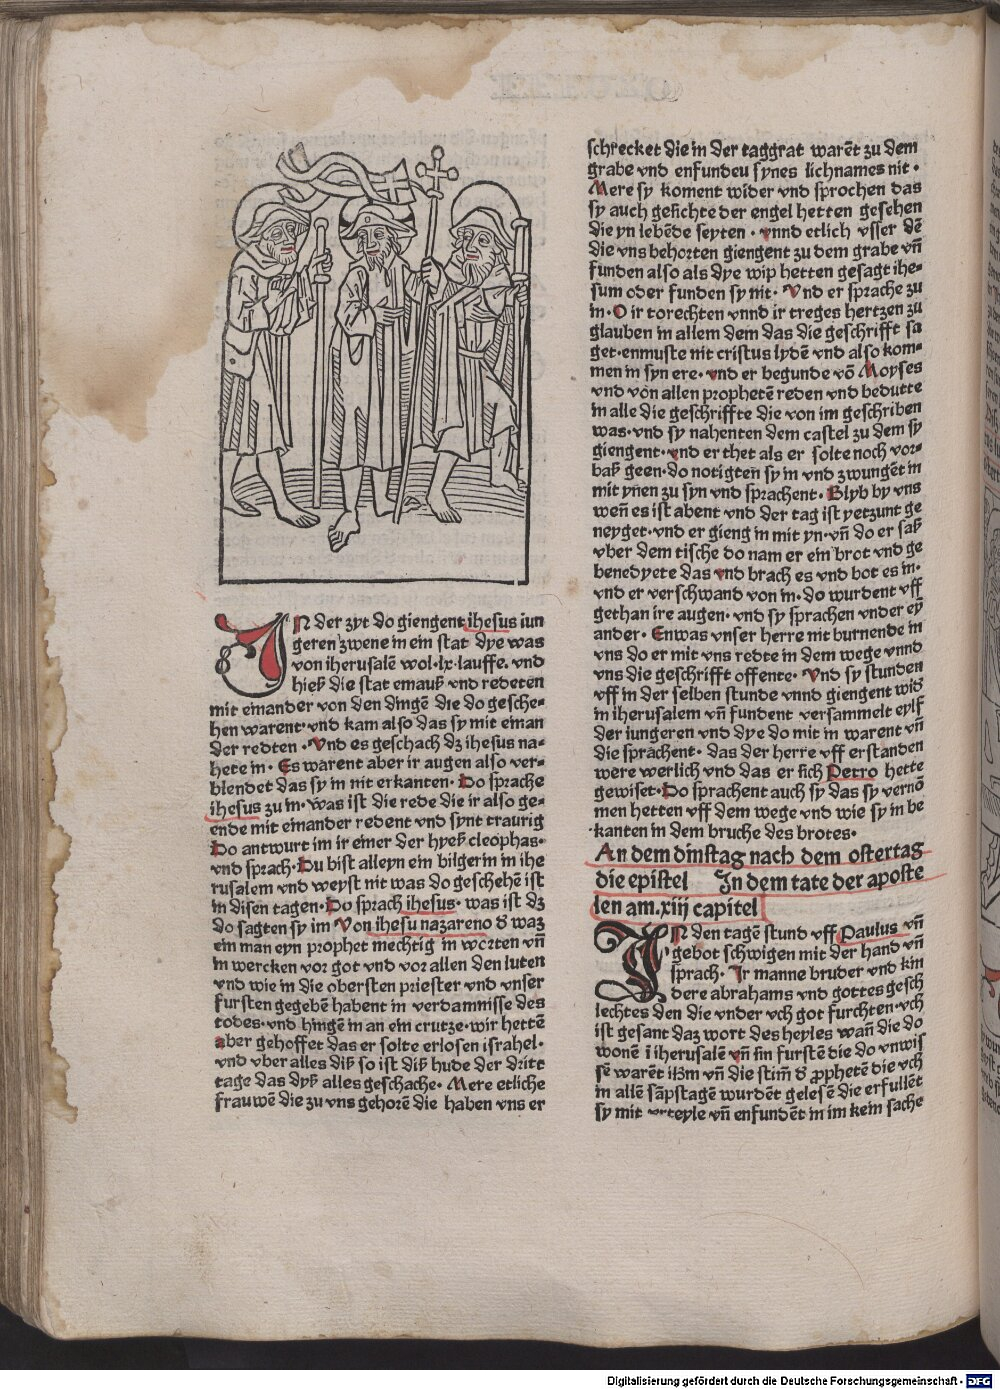 In der zyt do giengent ihesus iun
geren zwene in ein stat dye was
von iherusalē wol·lx·lauffe. vnd
hieß die stat emauß vnd redeten
mit einander von den dingē die do gesche⸗
hen warent·vnd kam also das sy mit einan
der redten · Vnd es geschach dz ihesus na⸗
hete in· Es warent aber ir augen also ver⸗
blendet das sy in nit erkanten· Do sprache
ihesus zu in· was ist die rede die ir also ge⸗
ende mit einander redent vnd synt traurig
Do antwurt im ir einer der hyeß cleophas·
vnd sprach·Du bist alleyn ein bilgerin in ihe
rusalem vnd weyst nit was do geschehē ist
in disen tagen· Do sprach ihesus· was ist dz
do sagten sy im Von ihesu nazareno d̕ waz
ein man eyn prophet mechtig in worten vn̄
in wercken vor got vnd vor allen den luten
vnd wie in die obersten priester vnd vnser
fursten gegebē habent in verdamnisse des
todes·vnd hingē in an ein crutze·wir hettē
aber gehoffet das er solte erlosen israhel·
vnd vber alles diß so ist diß hude der dritt
tage das dyß alles geschache· Mere etliche
frauwē die zu vns gehorē die haben vns er
schrecket die in der taggrat warēt zu dem
grabe vnd enfundeu synes lichnames nit·
Mere sy koment wider vnd sprochen das
sy auch gesichte der engel hetten gesehen
die yn lebēde seyten · vnnd etlich vsser dē
die vns behorten giengent zu dem grabe vn̄
funden also als dye wip hetten gesagt ihe⸗
sum oder funden sy nit· Vnd er sprache zu
in· O ir torechten vnnd ir treges hertzen zu
glauben in allem dem das die geschrifft sa
get·enmuste nit cristus lydē vnd also kom⸗
men in syn ere·vnd er begunde vō Moyses
vnd von allen prophetē reden vnd bedutte
in alle die geschriffte die von im geschriben
was·vnd sy nahenten dem castel zu dem sy
giengent·vnd er thet als er solte noch vor⸗
baß geen·do notigten sy in vnd zwungēt in
mit ynen zu syn vnd sprachent· Blyb by vns
wen̄ es ist abent vnd der tag ist yetzunt ge
neyget·vnd er gieng in mit yn·vn̄ do er saß
vber dem tische do nam er ein brot vnd ge
benedyete das vnd brach es vnd bot es in·
vnd er verschwand von in· do wurdent vff
gethan ire augen· vnd sy sprachen vnder ey
ander· Enwas vnser herre nit burnende in
vns do er mit vns redte in dem wege vnnd
vns die geschrifft offente· Vnd sy stunden
vff in der selben stunde vnnd giengent wid̕
in iherusalem vn̄ fundent versammelt eylf
der iungeren vnd dye do mit in warent vn̄
die sprachent· das der herre vff erstanden
were werlich vnd das er sich Petro hette
gewiset·Do sprachent auch sy das sy vernō
men hetten vff dem wege vnd wie sy in be
kanten in dem bruche des brotes·
An dem dinstag nach dem ostertag
die epistel In dem tate der aposte
len am.xiij capitel
In den tagē stund vff Paulus vn̄
gebot schwigen mit der hand vn̄
sprach· Ir manne bruder vnd kin
dere abrahams vnd gottes gesch
lechtes den die vnder vch got furchten·vch
ist gesant daz wort des heyles wan̄ die do
wonē ī iherusalē vn̄ sin furstē die do vnwis
se warēt ih̄m vn̄ die stim̄ d̕ prophetē die vch
in allē sāpstagē wurdēt gelesē die erfullēt
sy mit vrteyle vn̄ enfundēt in im kein sache
Digitalisierung gefördert durch die Deutsche Forschungsgemeinschaft - DFG